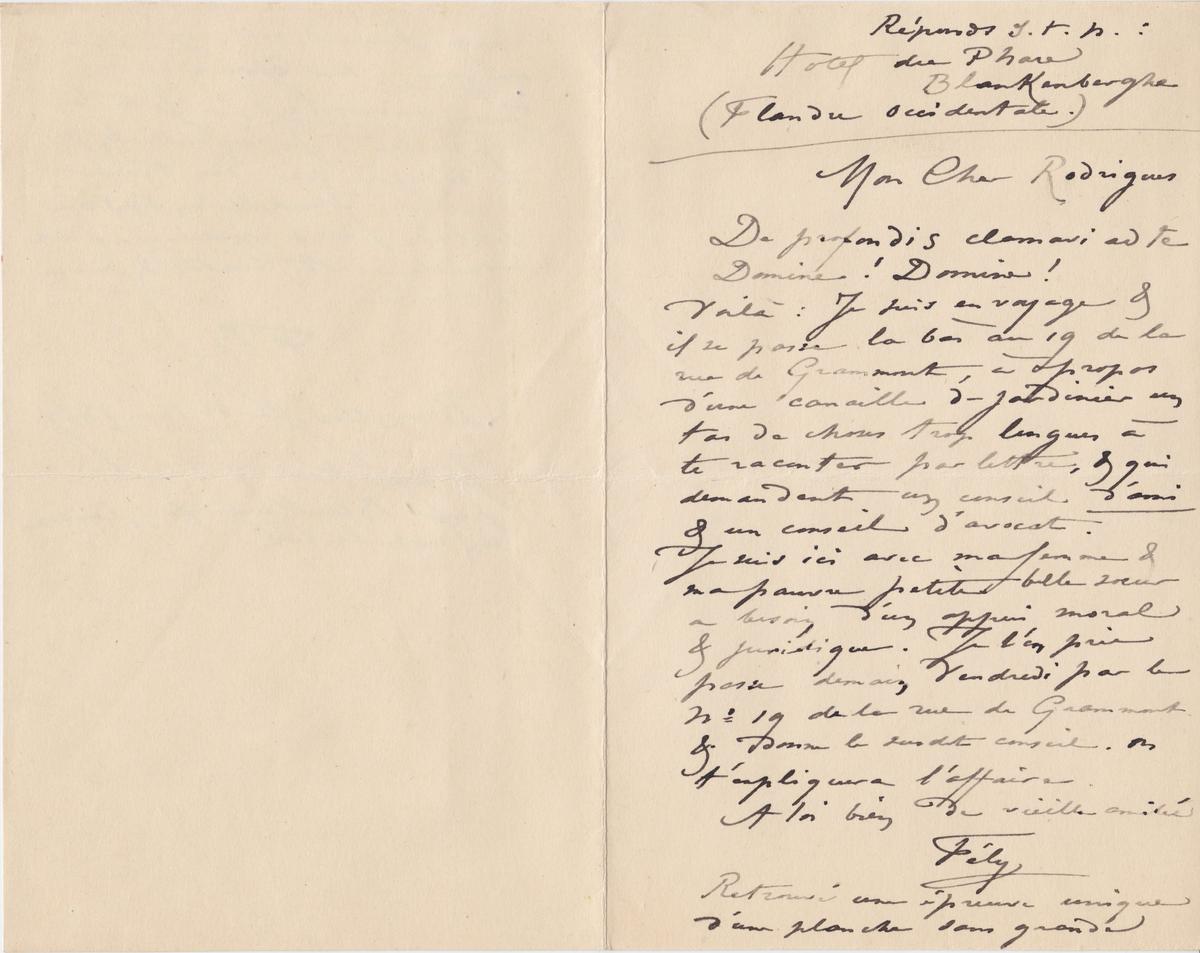 Réponds s. t. p. :
Hotel du Phare
Blankenberghe
(Flandre Occidentale.)
Mon Cher Rodrigues
De profondis clamavi ad te
Domine ! Domine !
Voilà : Je suis en voyage &
il se passe la bas au 19 de la
rue de Grammont, à propos
d'une canaille de jardinier un
tas de choses trop longues à
te raconter par lettre, & qui
demandent un conseil d'ami
& un conseil d'avocat.
Je suis ici avec ma femme &
ma pauvre petite belle soeur
a besoin d'un appui moral
& juridique. Je t'en prie
passe demain Vendredi par le
No 19 de la rue de Grammont
& donne le susdit conseil. on
t'expliquera l'affaire.
A toi bien de vieille amitié
Fély
Retrouvé une épreuve unique
d'une planche sans grande